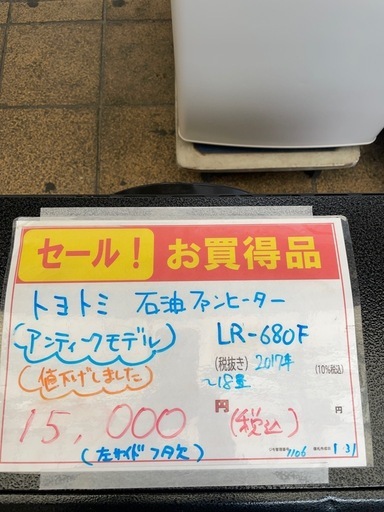 セール! お買得品
トヨトミ 石油ファンヒーター
(アンティークモデル) LR-680F
(値下げしました) (税抜き) 2017年 (10%税込)
~18畳
15,000 円 (税込) 円
(左サイドフタ欠) 7106 1 31